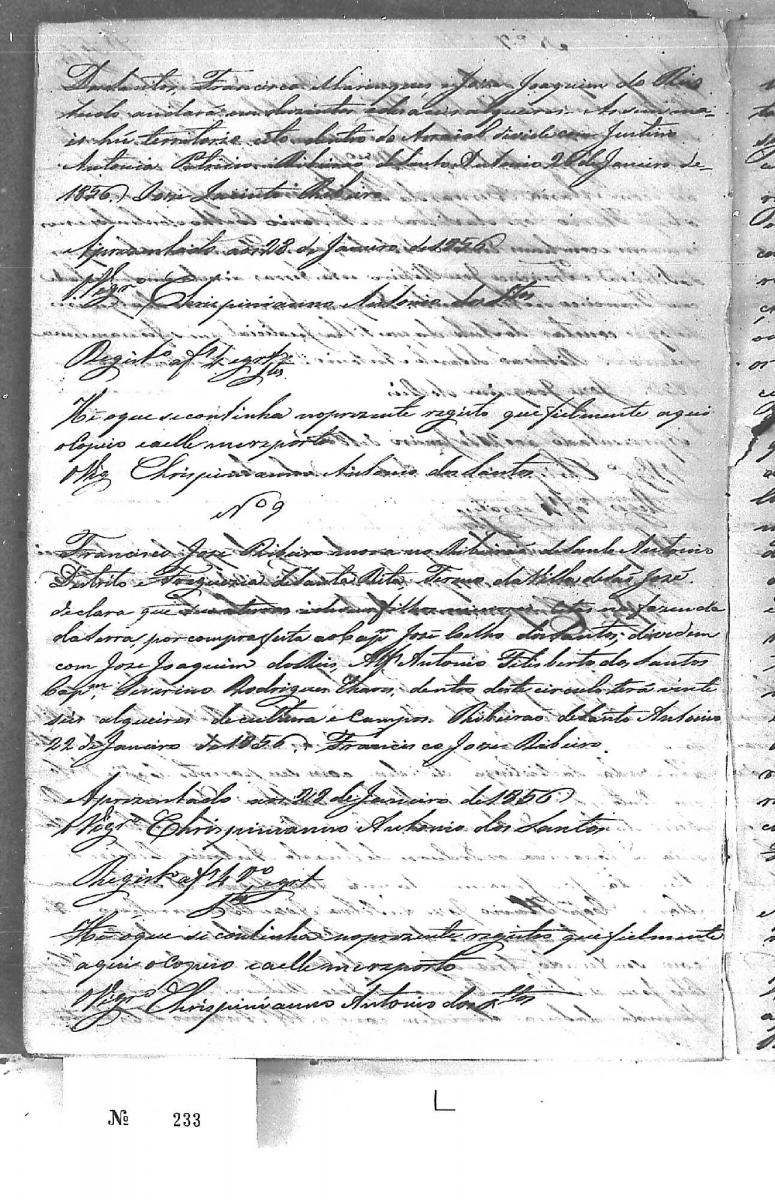 dos Santos, Francisco Marinques e Jose Joaquim do Reis
tudo andará em duzentos alqueires. Assim ma-
is hú territorio dentro do Arraial divide com Justino
Antonio Ribeiro. Ribeirão de Santo Antonio 20 de Janeiro de
1856, Jose Jacinto Ribeiro
Aprezentado aos 28 de Janeiro de 1856
O Vigrº Chrispinianno Antonio dos Stos
Registº a f
He oque se continha no prezente registo que fielmente aqui
o copiei e a elle me reporto
O Vig Chrispinianno Antonio dos Santos
Nº 9
Francisco Jose Ribeiro mora no Ribeirão de Santo Antonio
Districto Freguezia de Santa Rita, Termo da Villa de São José
declara que filhos menores na fazenda
da Serra, por compra feita ao Capm José Coelho dos Santos, dividem
com Jose Joaquim do Reis, Alfs Antonio Filisberto dos Santos
Capm Severino Rodrigues Chaves, dentro deste circulo terá vinte
seis alqueires de cultura e Campos. Ribeirão de Santo Antonio
22 de Janeiro de 1856. Francisco Jose Ribeiro.
Aprezentado aos 22 de Janeiro de 1856
O Vigrº Chrispinianno Antonio dos Santos
Registº a f
He oque se continha no prezente registo que fielmente
aqui o copiei e a elle me reporto
O Vigrº Chrispinianno Antonio dos Stos
Nº 233